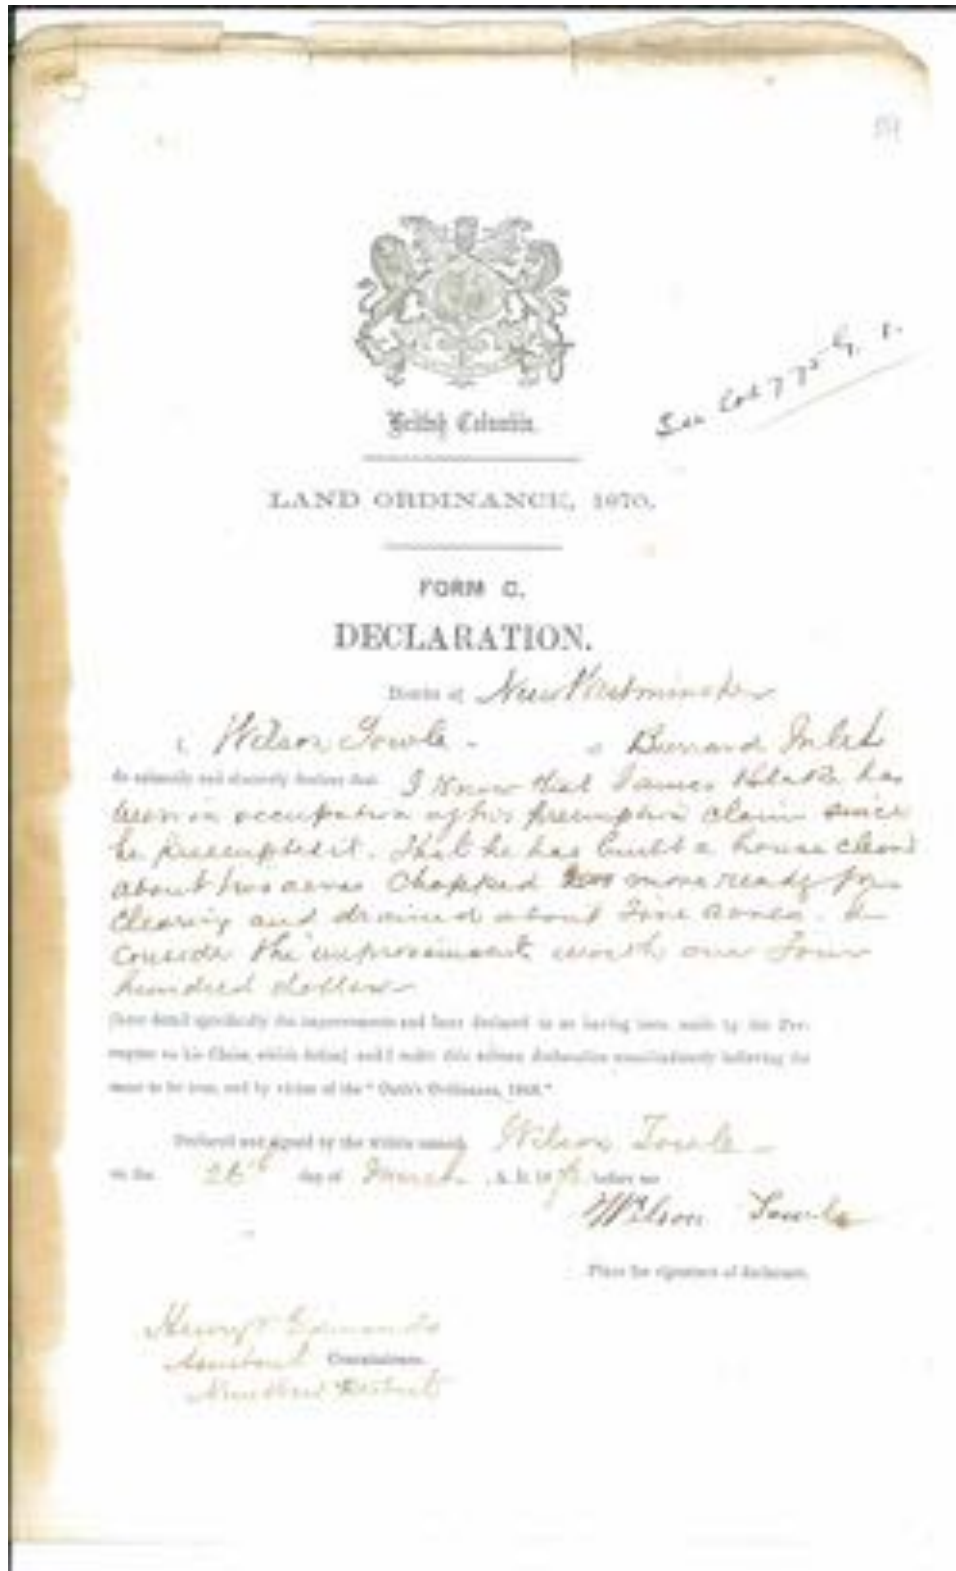 British Columbia.
LAND ORDINANCE, 1870.
FORM C.
DECLARATION.
District of New Westminster
I, Wilson Towle - of Burrard Inlet
do solemnly and sincerely declare that I know that James Blake has
been in occupation of his preemption claim since
he preempted it. That he has built a house cleard
about two acres Chopped more ready for
Clearing and drained about five acres. I
Consider the improvements worth over four
hundred dollars
[here detail specifically the improvements and facts declared to as having been made by the Pre-
emptor on his Claim, which define] and I make this solemn declaration conscientiously believing the
same to be true, and by virtue of the "Oath's Ordinance, 1869."
Declared and signed by the within named, Wilson Towle -
on the 26th day of March A. D. 18 before me
Wilson Towle
Place for signature of declarant.
Henry Edmonds
Assistant Commissioner.
District